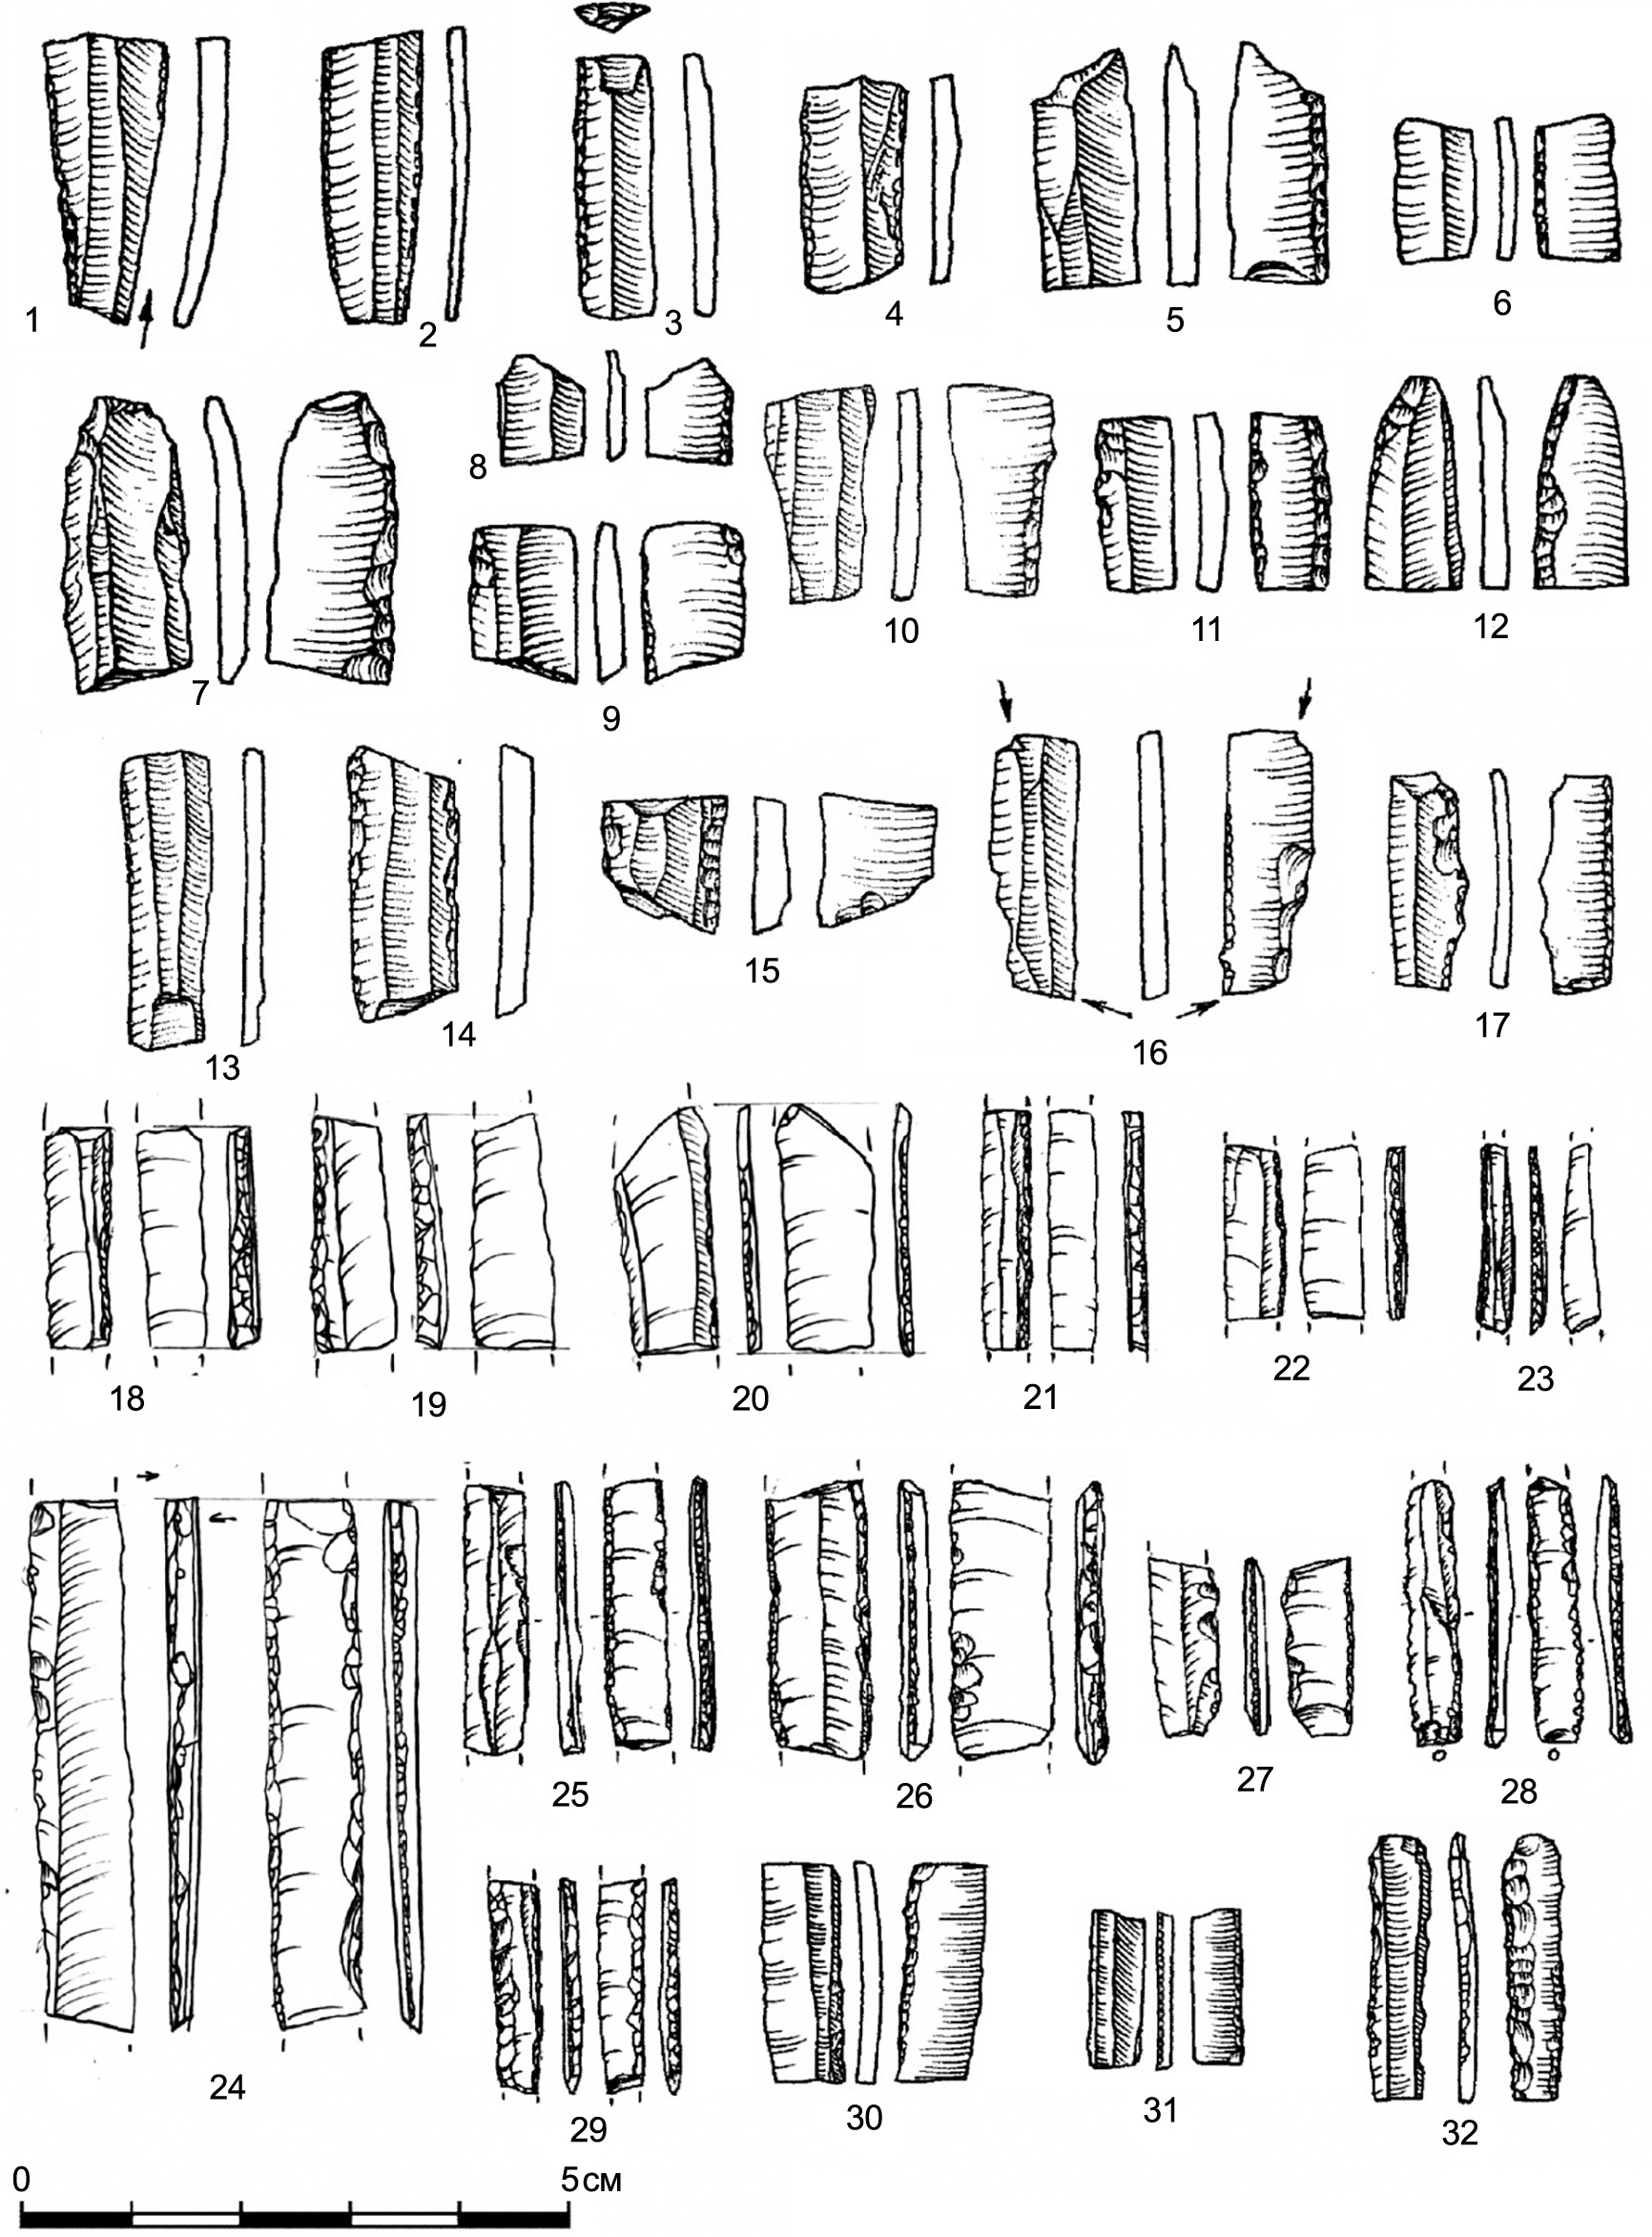 1
2
3
4
5
6
7
8
9
10
11
12
13
14
15
16
17
18
19
20
21
22
23
24
25
26
27
28
29
30
31
32
0 5см